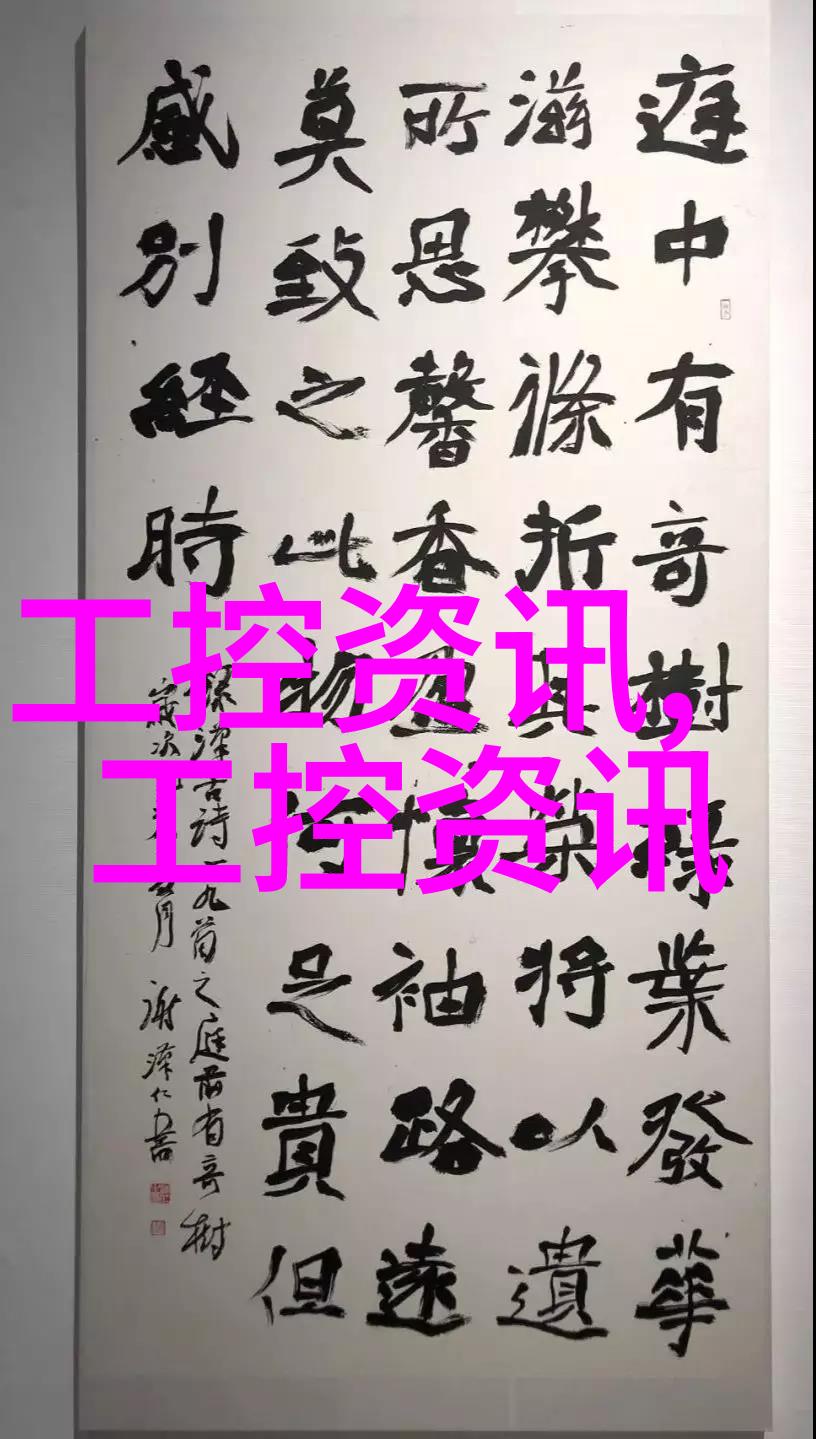 工控资讯,
工控资讯
庭中有竒樹綠葉發華
滋攀條折其榮將以遺
所思馨香盈懷袖路遠
莫致之此物何足貴但
感別經時
古詩一九首之庭前有竒樹
歲次 月 謝 仁書